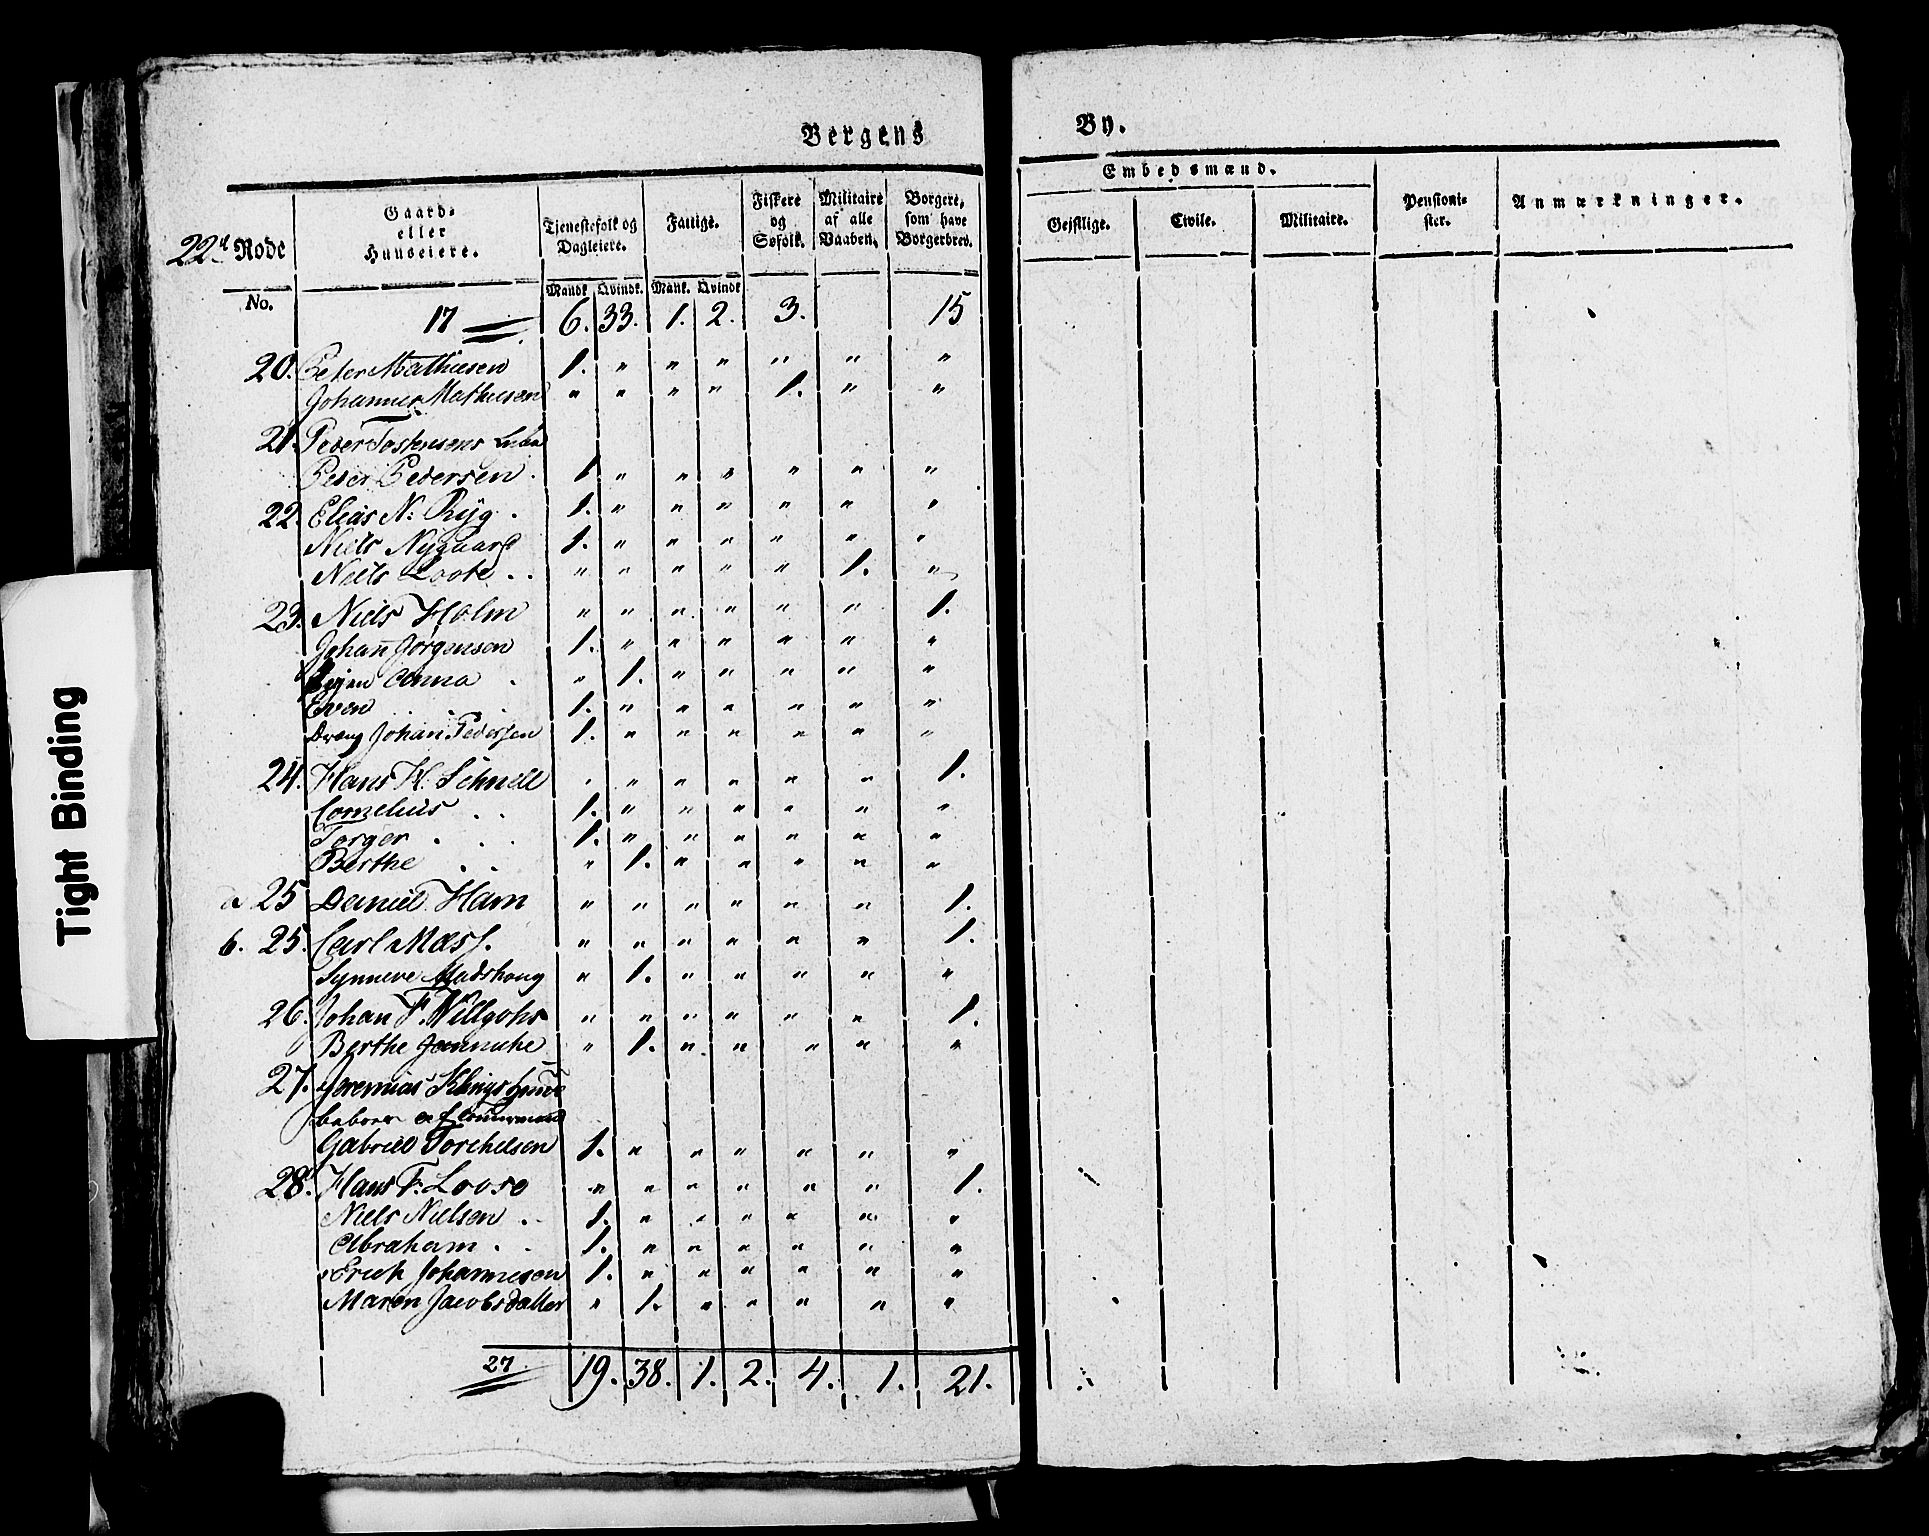 Bergens By.
22d Rode
No.
Gaard- eller Huuseiere.
Tjenestefolk og Dagleiere. Mandk. Qvindk.
Fattige. Mank. Qvindk
Fiskere og Søfolk.
Militaire af alle Vaaben.
Borgere, som have Borgerbrev.
Embedsmænd.
Geistlige. Civile. Militaire.
Pensionister.
Anmærkninger.
17 6. 33. 1. 2. 3. 15
20. Peter Mathiesen 1. " " " " " "
Johannes Mathiesen " " " " 1. " "
21. Peder Tostensens
Peder Pedersen. 1. " " " " " "
22. Elias N: Ryg. 1. " " " " " "
Niels Nygaard 1. " " " " " "
Niels Loote .. " " " " " 1. "
23. Niels Holm " " " " " " 1.
Johan Jørgensen 1. " " " " " "
Anna . " 1. " " " " "
Even . . 1. " " " " " "
Dreng Johan Pedersen 1. " " " " " "
24. Hans H. Schnell " " " " " " 1.
Cornelius . . 1. " " " " " "
Torger . . . 1. " " " " " "
Berthe . . " 1. " " " " "
a 25 Daniel Ham " " " " " " 1.
b. 25. Carl Mass. " " " " " " 1.
Synneve Madshoug " 1. " " " " "
26. Johan F. Willgohs " " " " " " 1.
Berthe Jannicke " 1. " " " " "
27. Jeremias
beboer af
Gabriel Torchelsen 1. " " " " " "
28. Hans F. Loose " " " " " " 1.
Niels Nielsen .. 1. " " " " " "
Abraham . . 1. " " " " " "
Erich Johannesen 1. " " " " " "
Maren Jacobsdatter " 1. " " " " "
27. 19. 38. 1. 2. 4. 1. 21.
Tight Binding